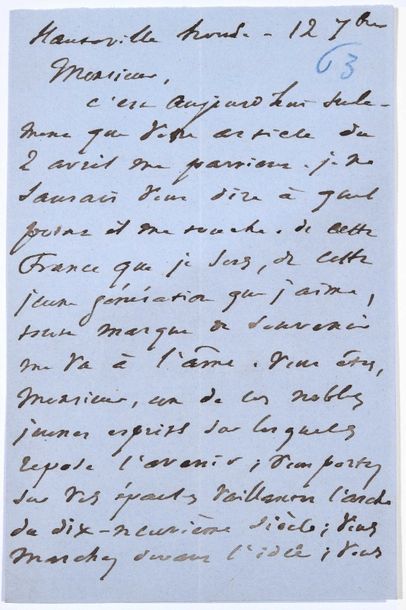 Hauteville house - 12 7bre
63
Monsieur,
c'est aujourd'hui seule-
ment que votre article du
2 avril me parvient. je ne
saurais vous dire à quel
point il me touche. de cette
France que je sers, de cette
jeune génération que j'aime,
toute marque de souvenir
me va à l'âme. Vous êtes,
Monsieur, un de ces nobles
jeunes esprits sur lesquels
repose l'avenir ; vous portez
sur vos épaules vaillamment l'arche
du dix-neuvième siècle ; vous
marchez devant l'idée ; vous